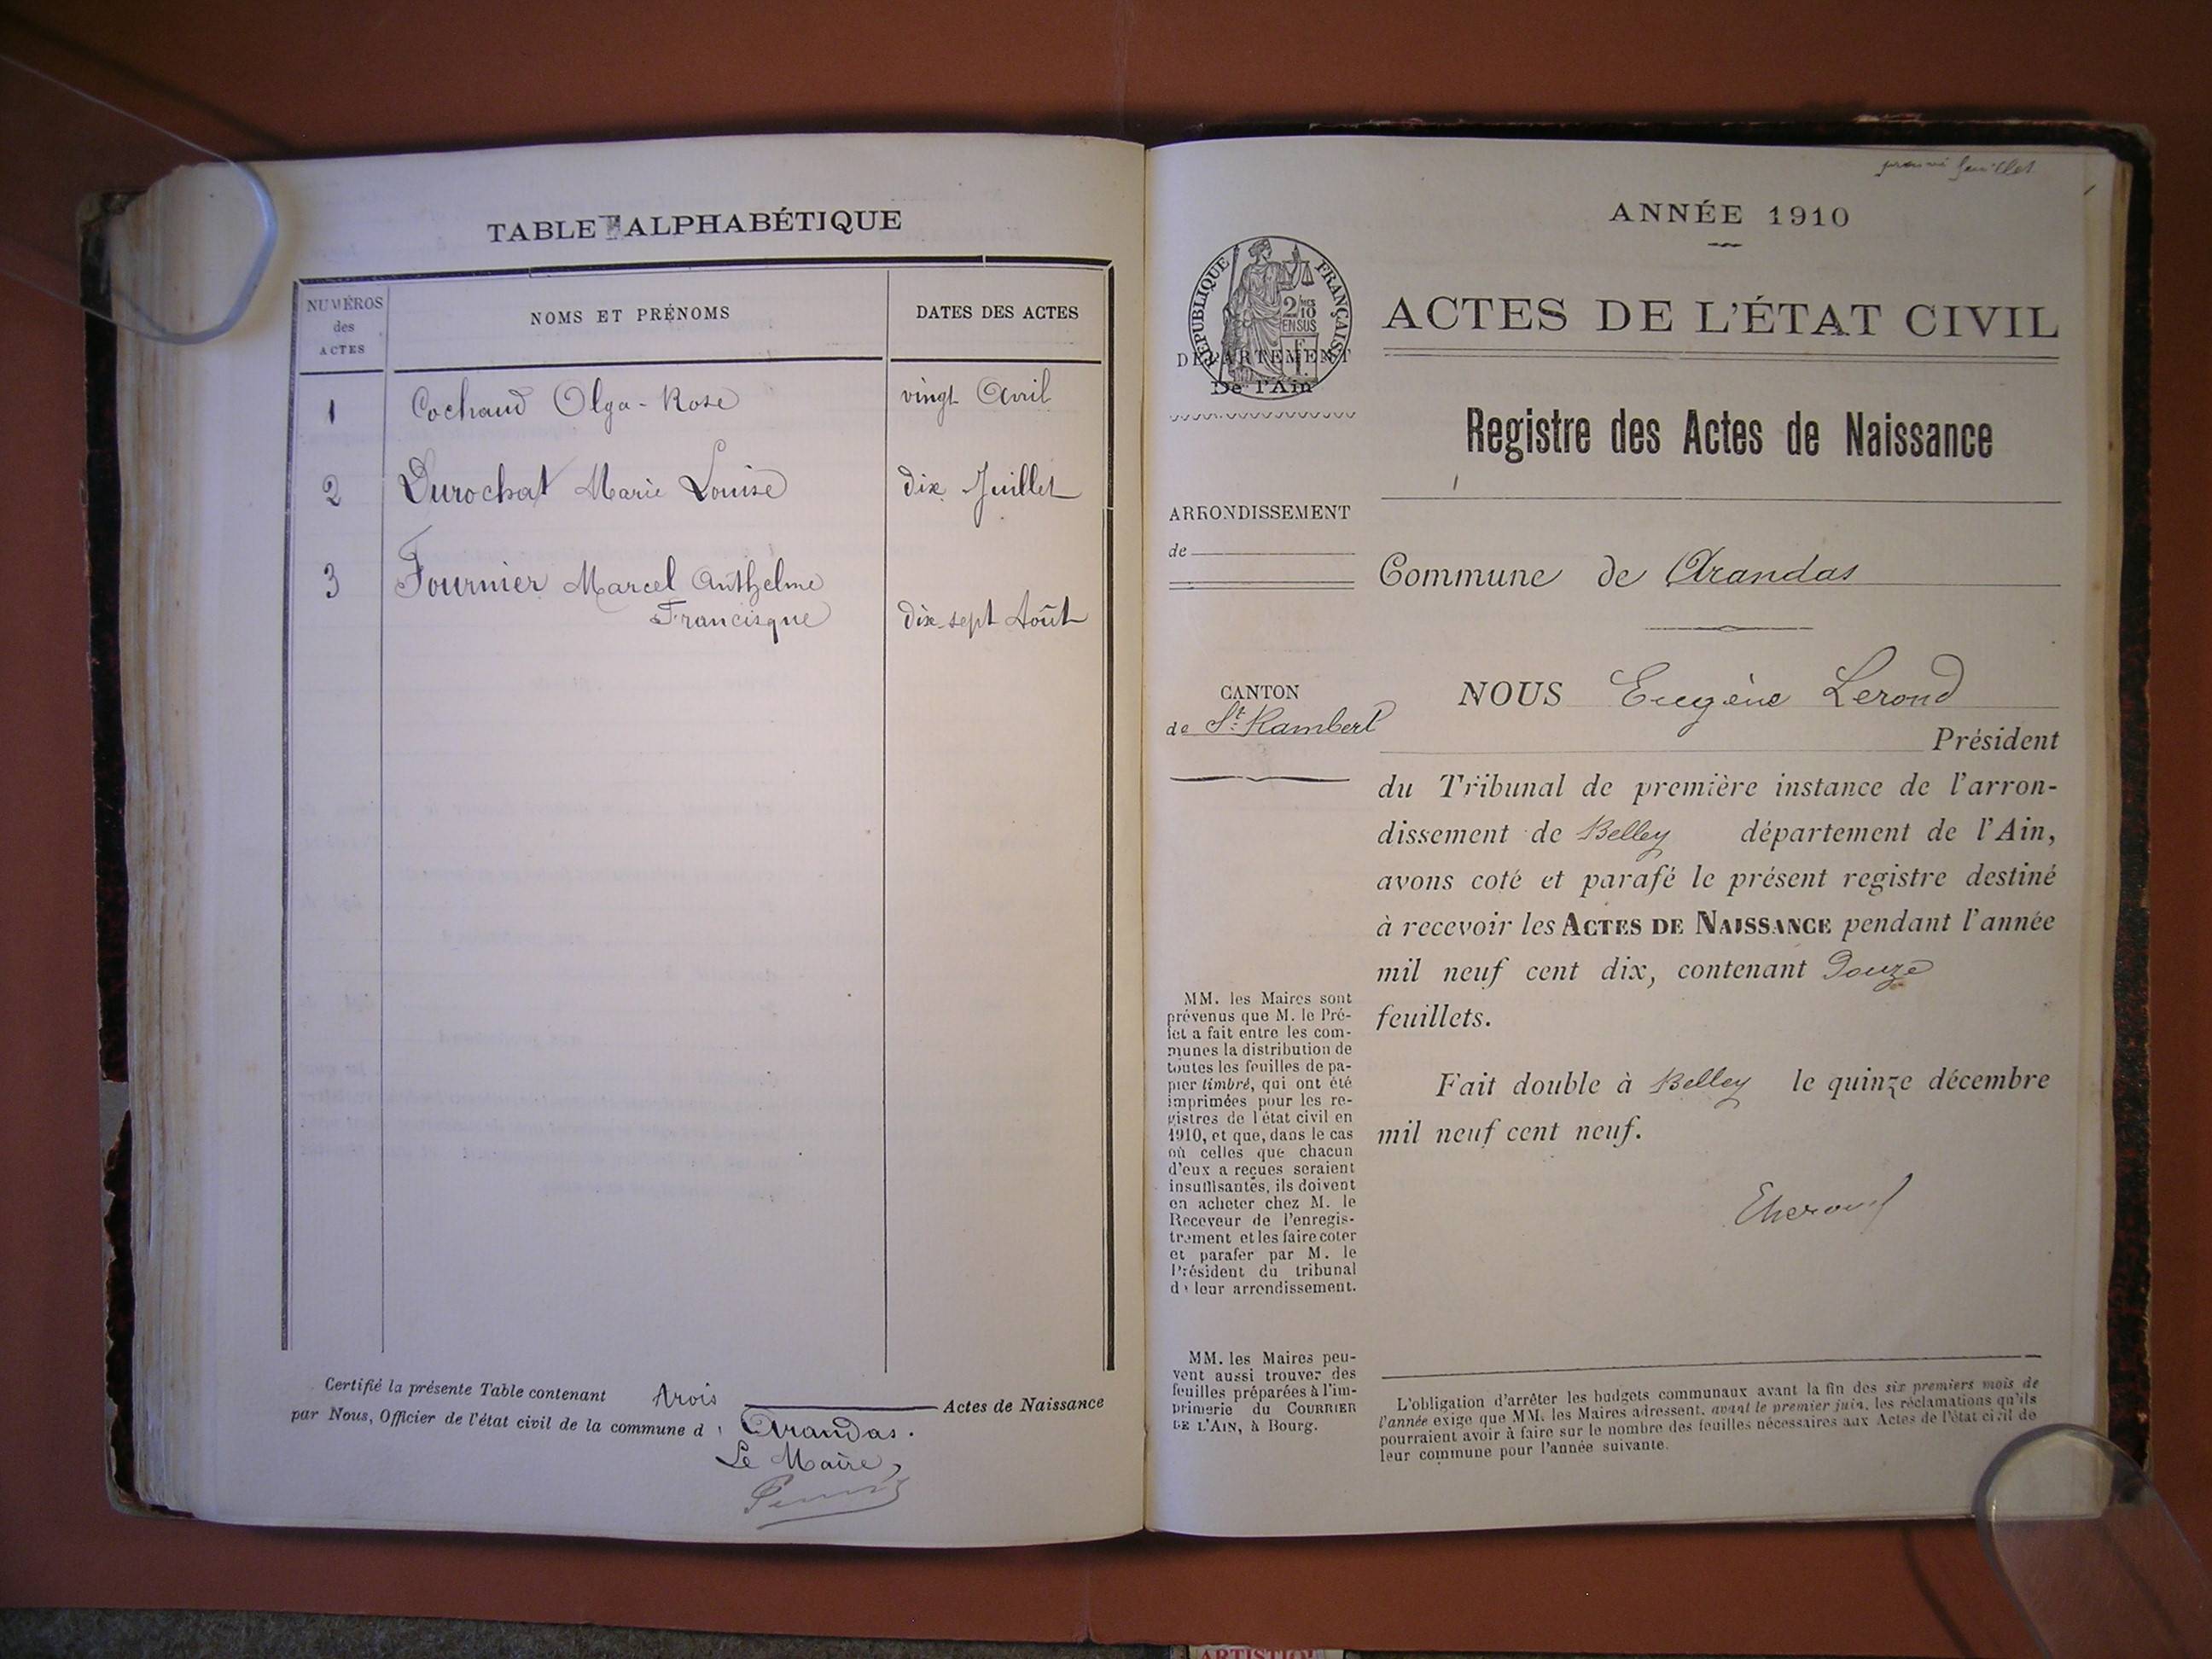 TABLE ALPHABÉTIQUE
NUMÉROS
des
ACTES
NOMS ET PRÉNOMS
DATES DES ACTES
1 Cochaud Olga-Rose vingt Avril
2 Durochat Marie Louise dix Juillet
3 Fournier Marcel Anthelme
Francisque dix-sept Août
Certifié la présente Table contenant trois Actes de Naissance
par Nous, Officier de l'état civil de la commune d' Arandas.
Le Maire,
premier feuillet
ANNÉE 1910
RÉPUBLIQUE FRANÇAISE
2/10
EN SUS
DÉPARTEMENT
De l'Ain
ACTES DE L'ÉTAT CIVIL
Registre des Actes de Naissance
ARRONDISSEMENT
de
Commune de Arandas
CANTON
de St Rambert
NOUS Eugène Lerond
Président
du Tribunal de première instance de l'arron-
dissement de Belley département de l'Ain,
avons coté et parafé le présent registre destiné
à recevoir les ACTES DE NAISSANCE pendant l'année
mil neuf cent dix, contenant Douze
feuillets.
Fait double à Belley le quinze décembre
mil neuf cent neuf.
MM. les Maires sont
prévenus que M. le Pré-
fet a fait entre les com-
munes la distribution de
toutes les feuilles de pa-
pier timbré, qui ont été
imprimées pour les re-
gistres de l'état civil en
1910, et que, dans le cas
où celles que chacun
d'eux a reçues seraient
insuffisantes, ils doivent
en acheter chez M. le
Receveur de l'enregis-
trement et les faire coter
et parafer par M. le
Président du tribunal
de leur arrondissement.
MM. les Maires peu-
vent aussi trouver des
feuilles préparées à l'im-
primerie du COURRIER
DE L'AIN, à Bourg.
L'obligation d'arrêter les budgets communaux avant la fin des six premiers mois de
l'année exige que MM. les Maires adressent, avant le premier juin, les réclamations qu'ils
pourraient avoir à faire sur le nombre des feuilles nécessaires aux Actes de l'état civil de
leur commune pour l'année suivante.